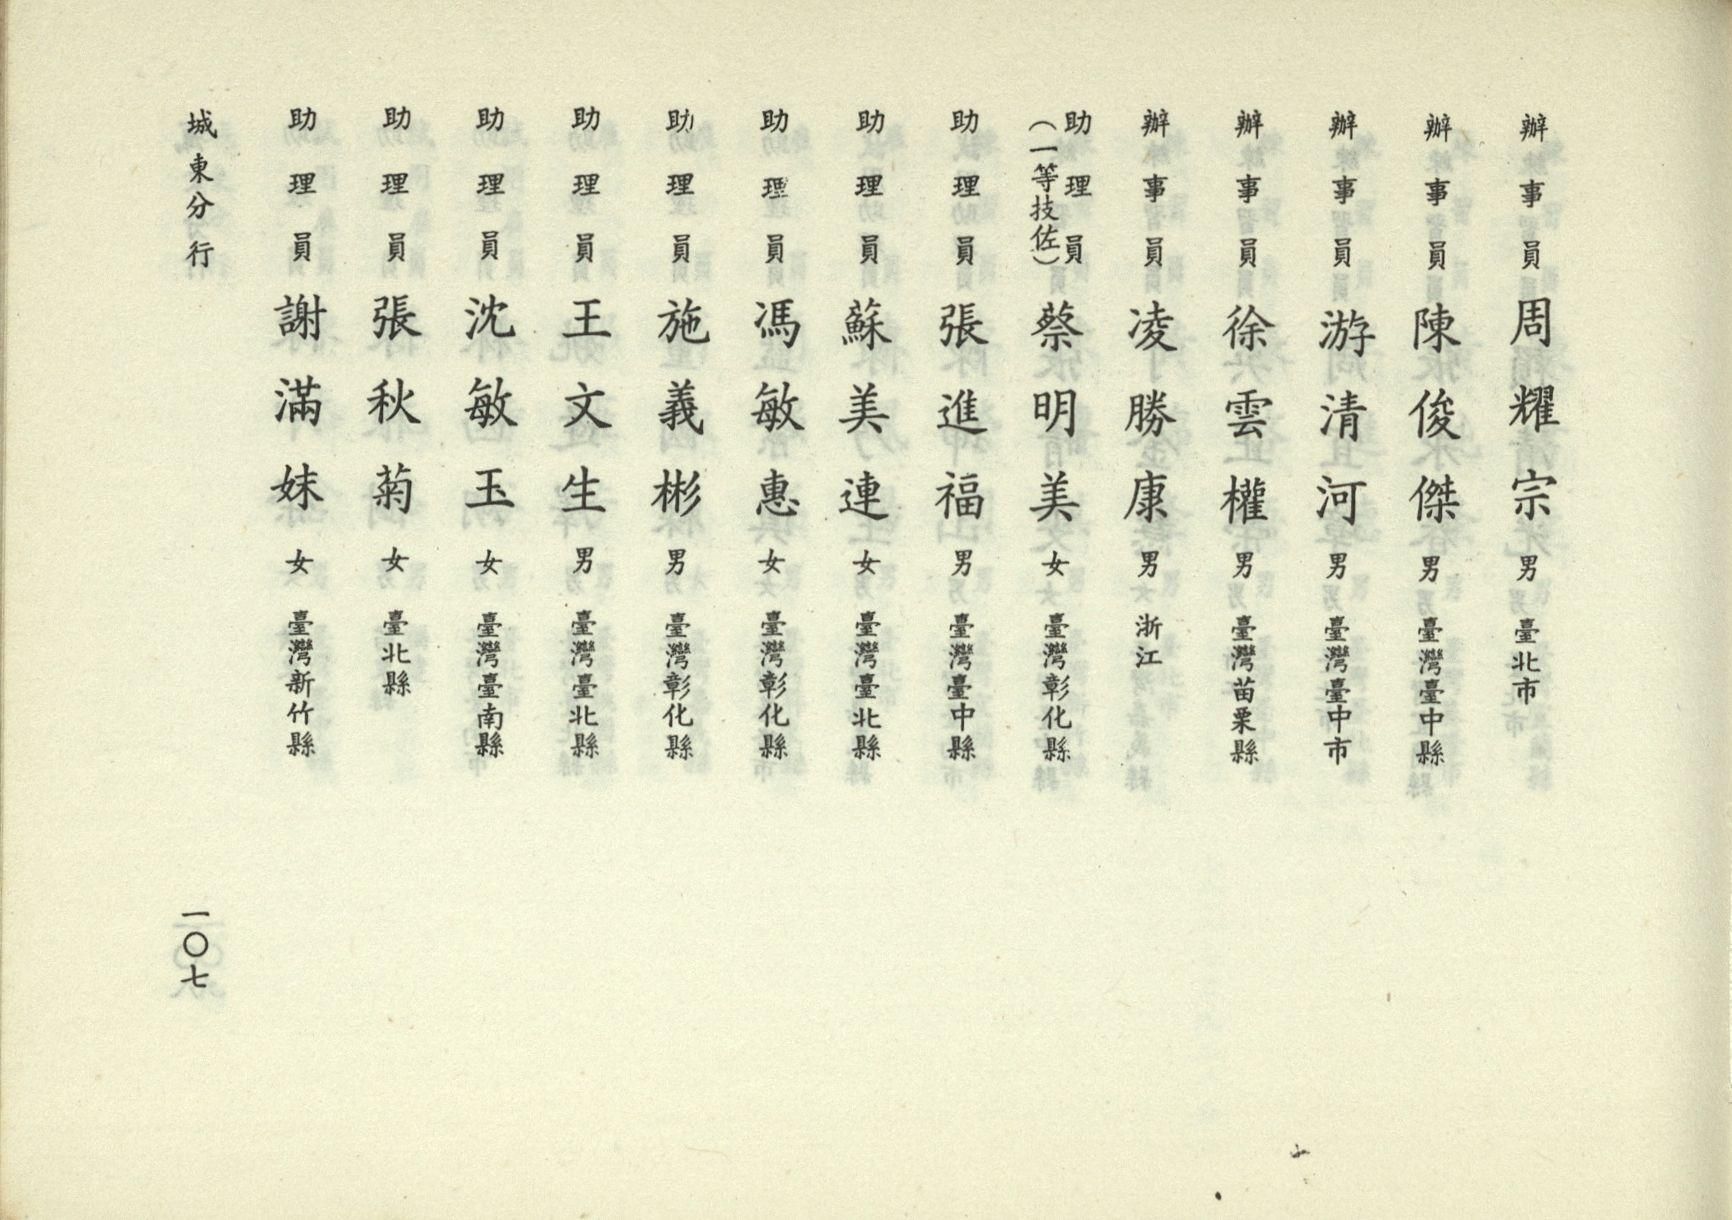 辦事員 周耀宗 男 臺北市
辦事員 陳俊傑 男 臺灣臺中縣
辦事員 游清河 男 臺灣臺中市
辦事員 徐雲權 男 臺灣苗栗縣
辦事員 凌勝康 男 浙江
助理員 (一等技佐) 蔡明美 女 臺灣彰化縣
助理員 張進福 男 臺灣臺中縣
助理員 蘇美連 女 臺灣臺北縣
助理員 馮敏惠 女 臺灣彰化縣
助理員 施義彬 男 臺灣彰化縣
助理員 王文生 男 臺灣臺北縣
助理員 沈敏玉 女 臺灣臺南縣
助理員 張秋菊 女 臺北縣
助理員 謝滿妹 女 臺灣新竹縣
城東分行
一〇七